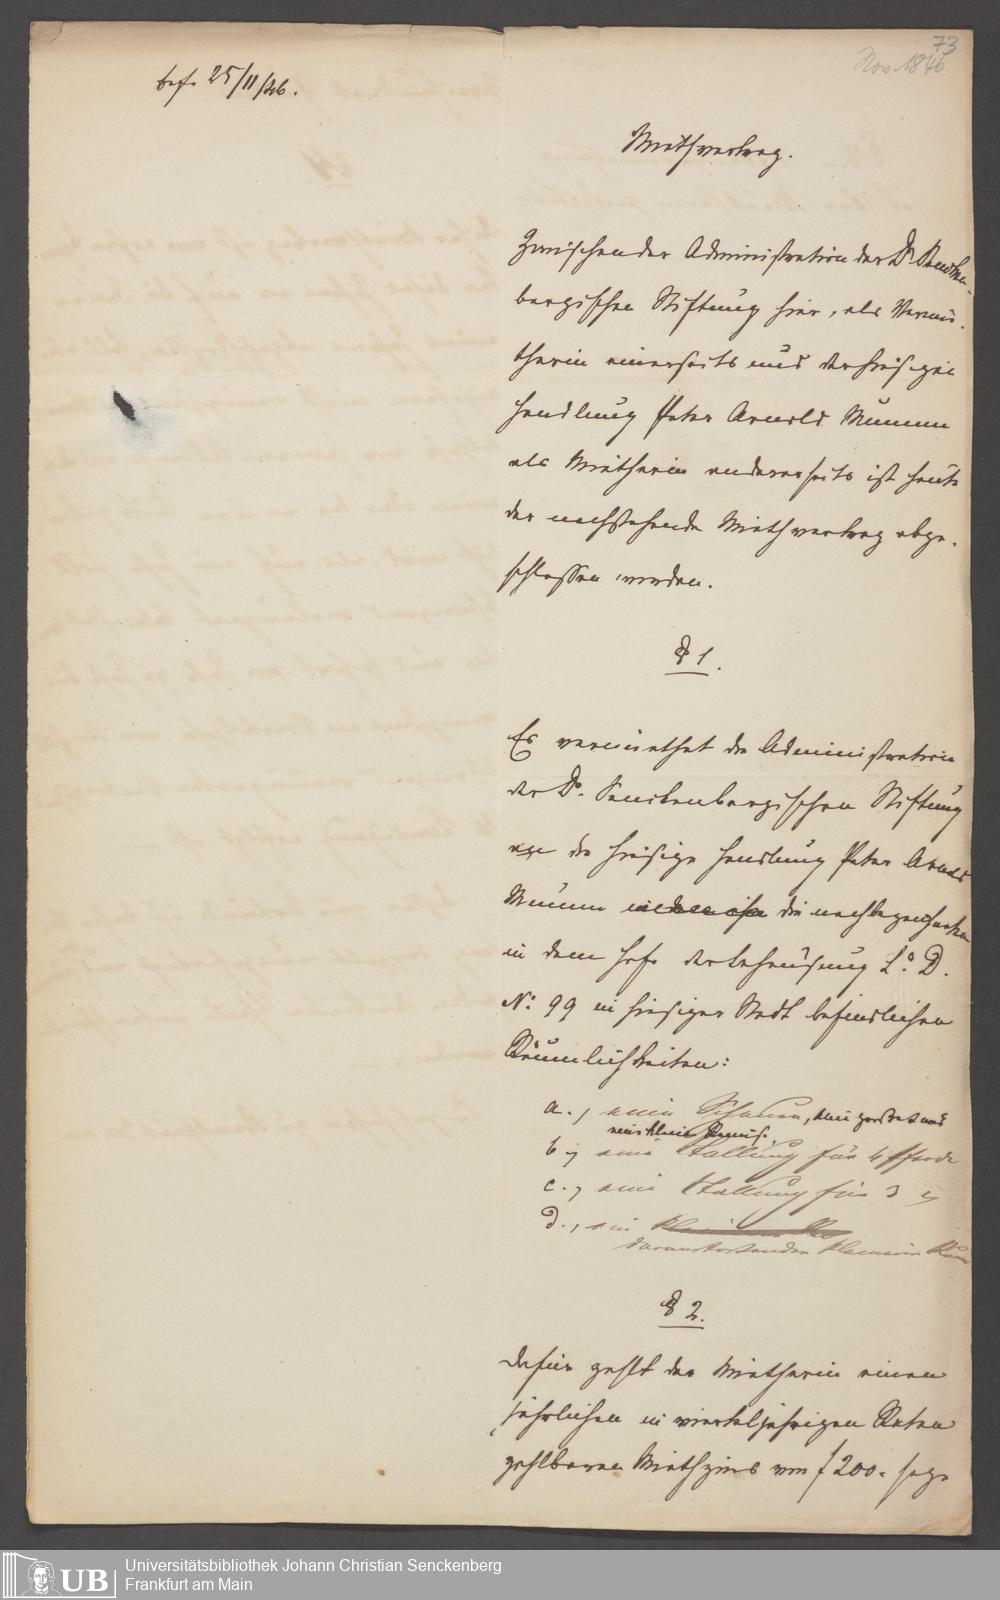 73
Nov. 1846
bes. 25/11/46.
Miethvertrag.
Zwischen der Administration der Dr. Sencken-
bergischen Stiftung hier, als Vermie-
therin einerseits und der hiesigen
Handlung Peter Arnold Mumm
als Mietherin andererseits ist heute
der nachstehende Miethvertrag abge-
schlossen worden.
§ 1.
Es vermiethet die Administration
der Dr. Senckenbergischen Stiftung
an die hiesige Handlung Peter Arnold
Mumm die nachbezeichneten
in dem Hofe der Behausung L.a D.
No. 99 in hiesiger Stadt befindlichen
Räumlichkeiten:
a., eine Scheuer, eine große und
eine kleine Remise,
b., eine Stallung für 4 Pferde
c., eine Stallung für 3 "
d., ein
daranstoßenden kleinen
§ 2.
Dafür zahlt die Mietherin einen
jährlichen in vierteljährigen Raten
zahlbaren Miethzins von f 200. sage
Universitätsbibliothek Johann Christian Senckenberg
Frankfurt am Main
UB